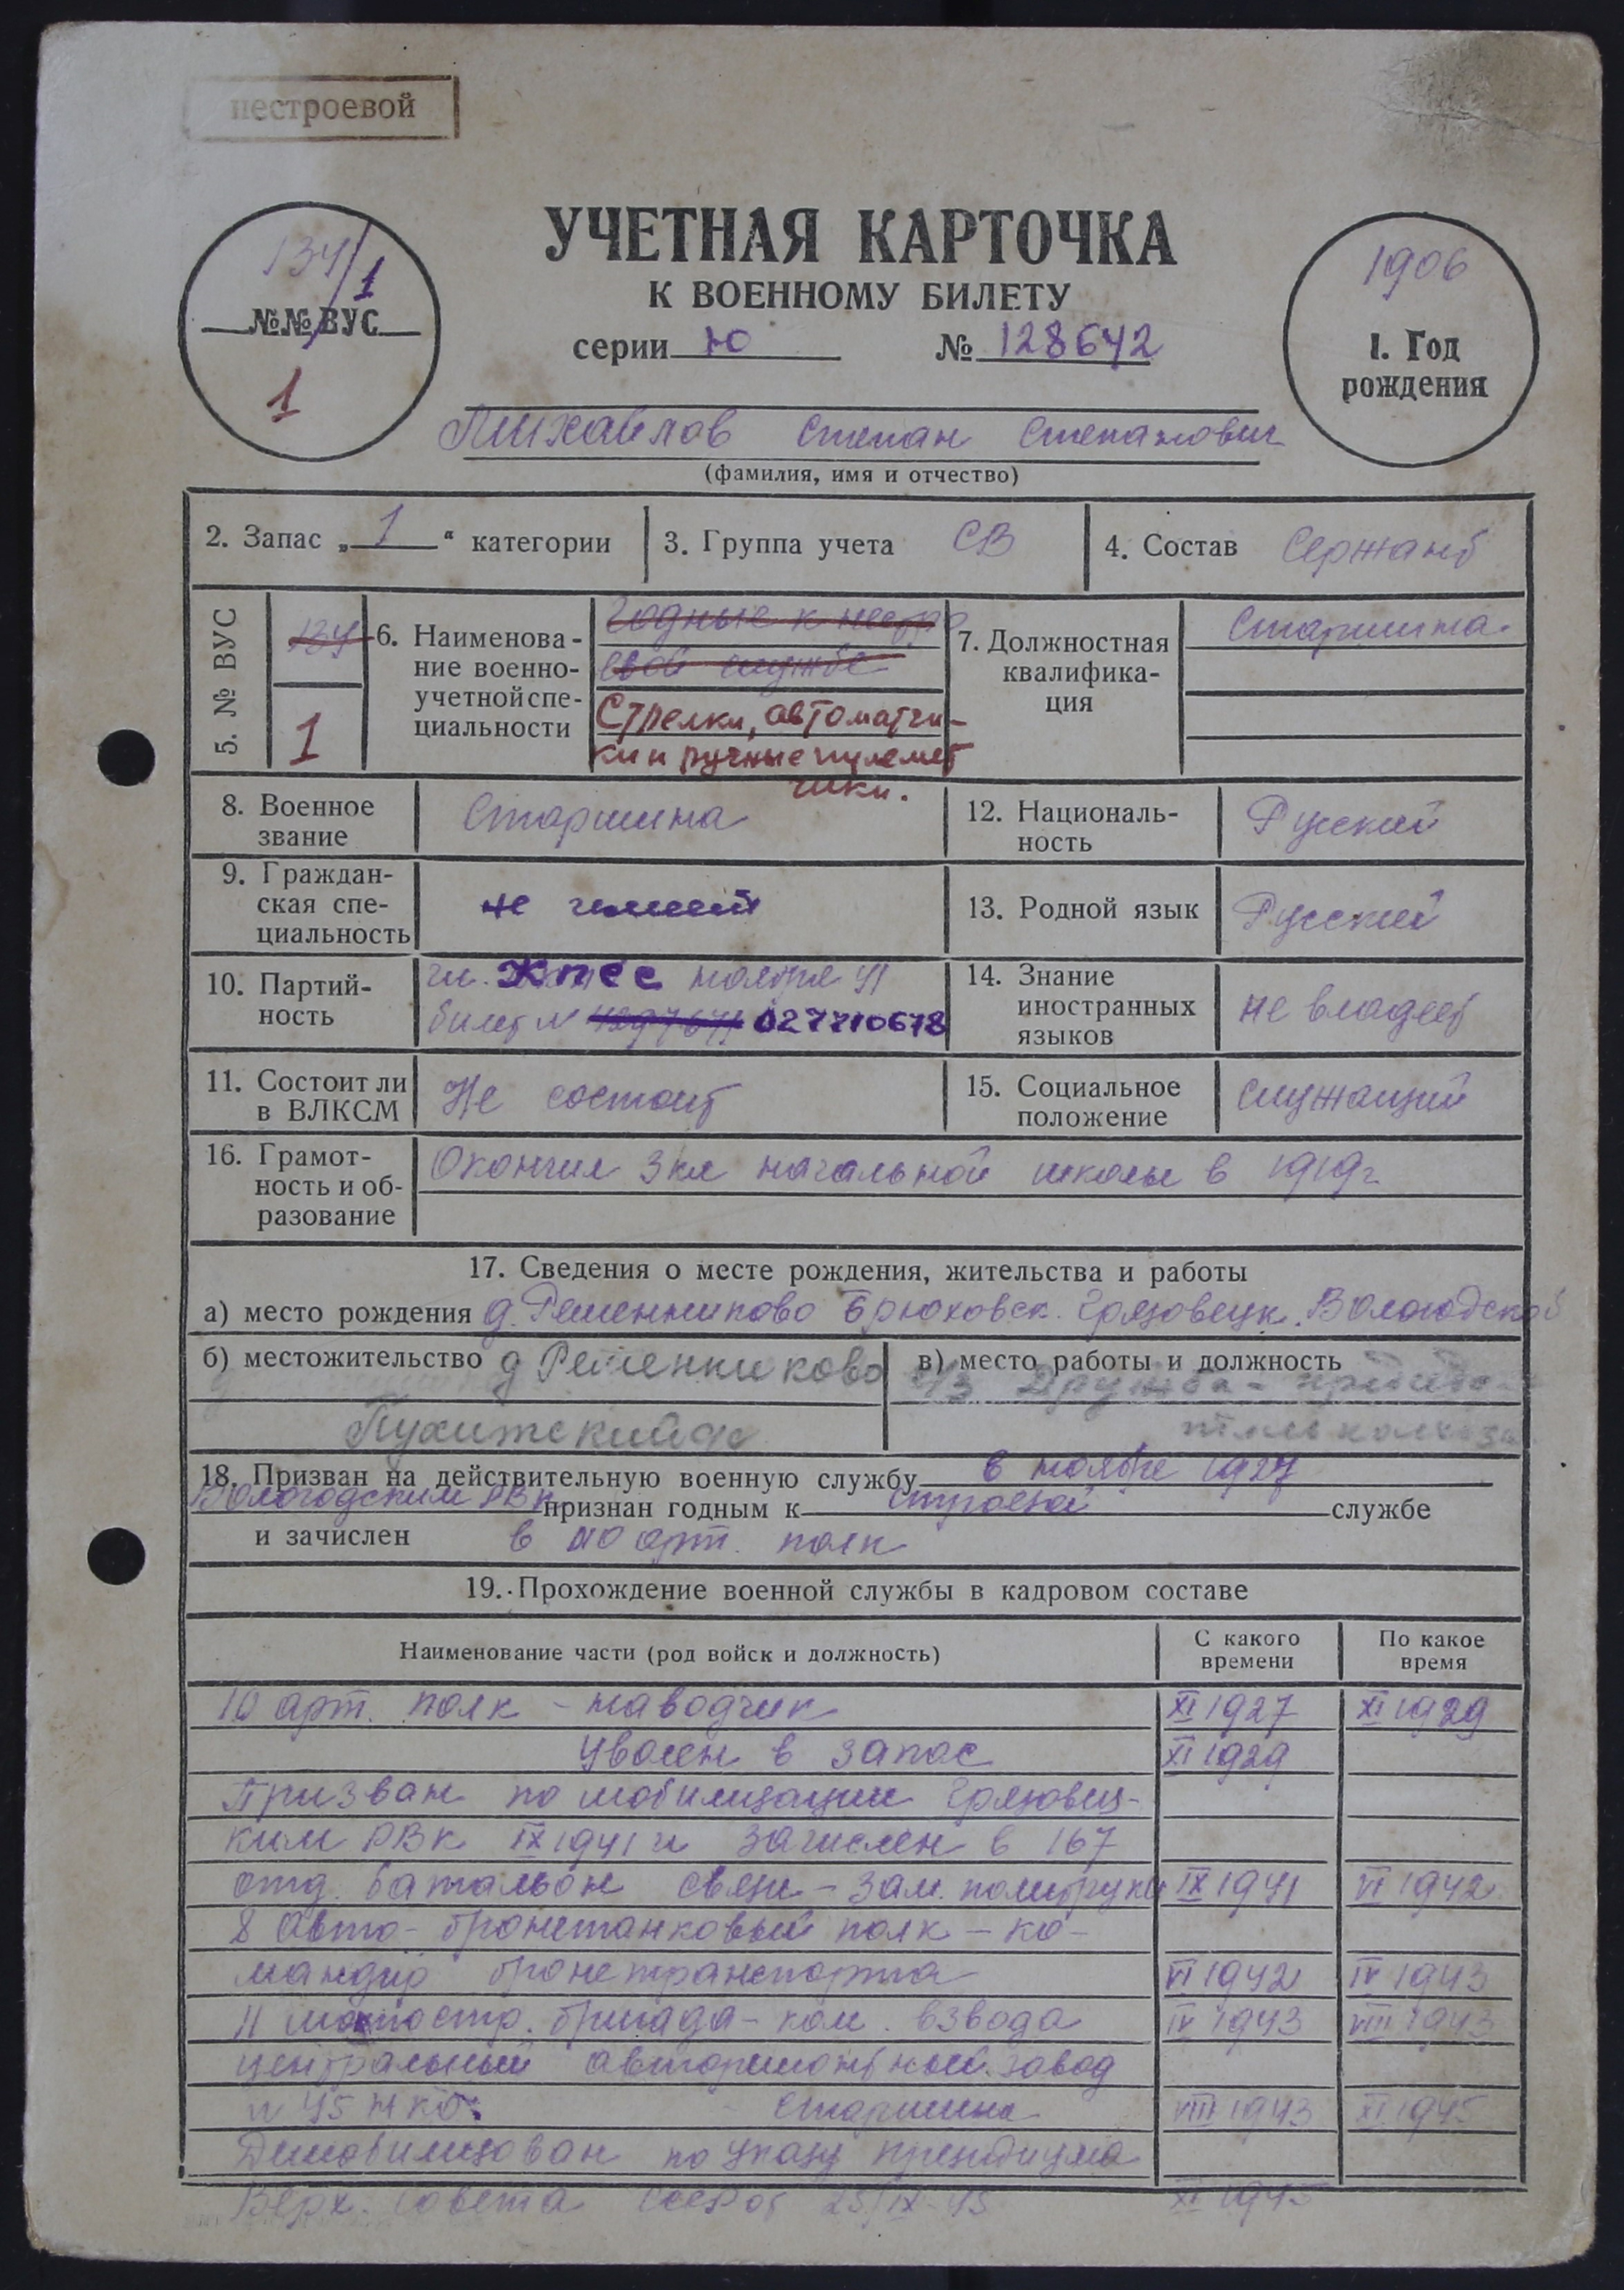 нестроевой
134/1
№№ ВУС
1
УЧЕТНАЯ КАРТОЧКА
К ВОЕННОМУ БИЛЕТУ
серии Ю № 128642
1906
1. Год
рождения
Михайлов Степан Степанович
(фамилия, имя и отчество)
2. Запас „1“ категории
3. Группа учета СВ
4. Состав Сержант
5. № ВУС
134
1
6. Наименова-
ние военно-
учетной спе-
циальности
Годные к нестро
евой службе
Стрелки, автоматчи-
ки и ручные пулемет
чики.
7. Должностная
квалифика-
ция
Старшина
8. Военное
звание
Старшина
12. Националь-
ность
Русский
9. Граждан-
ская спе-
циальность
не имеет
13. Родной язык
Русский
10. Партий-
ность
чл. КПСС ноября 41
билет № 027710678
14. Знание
иностранных
языков
не владеет
11. Состоит ли
в ВЛКСМ
Не состоит
15. Социальное
положение
служащий
16. Грамот-
ность и об-
разование
Окончил 3 кл начальной школы в 1919г
17. Сведения о месте рождения, жительства и работы
а) место рождения д. Брюховск. Грязовецк. Вологодской
б) местожительство д
в) место работы и должность
к/з Дружба - председа-
тель колхоза
18. Призван на действительную военную службу в ноябре 1927
Вологодским РВК признан годным к строевой службе
и зачислен в 10 арт. полк
19. Прохождение военной службы в кадровом составе
Наименование части (род войск и должность)
С какого
времени
По какое
время
10 арт. полк - наводчик XI 1927 XI 1929
Уволен в запас XI 1929
Призван по мобилизации Грязовец-
ким РВК IX 1941 и зачислен в 167
отд. батальон связи - зам. политрука IX 1941 VI 1942
8 авто-бронетанковый полк - ко-
мандир бронетранспорта VI 1942 IV 1943
11 мотостр. бригада - ком. взвода IV 1943 VIII 1943
центральный авторемонтный завод
№ 45 НКО. - старшина VIII 1943 XI 1945
Демобилизован по указу президиума
Верх. Совета СССР от 25/IX-45 XI 1945